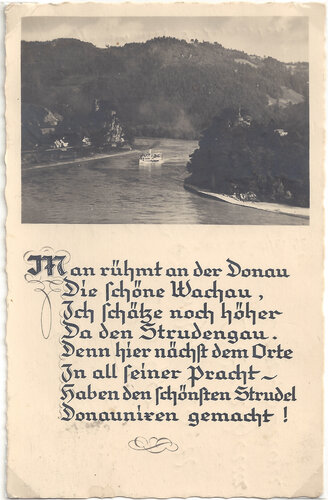 Man rühmt an der Donau
Die schöne Wachau,
Ich schätze noch höher
Da den Strudengau.
Denn hier nächst dem Orte
In all seiner Pracht~
Haben den schönsten Strudel
Donaunixen gemacht!